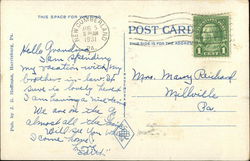 THIS SPACE FOR WRITING
POST CARD
THIS SIDE IS FOR THE ADDRESS
NEW CUMBERLAND
PA.
AUG 5
PM
1931
1
Hello Grandma
I am spending
my vacation with my
brothers in-law. It
sure is lovely here
I am having a nice
We are in the
almost all the
Will see you when
I come home
Mrs. Mary Richard
Millville
Pa.
Pub. by J. B. Hoffman, Harrisburg, Pa.